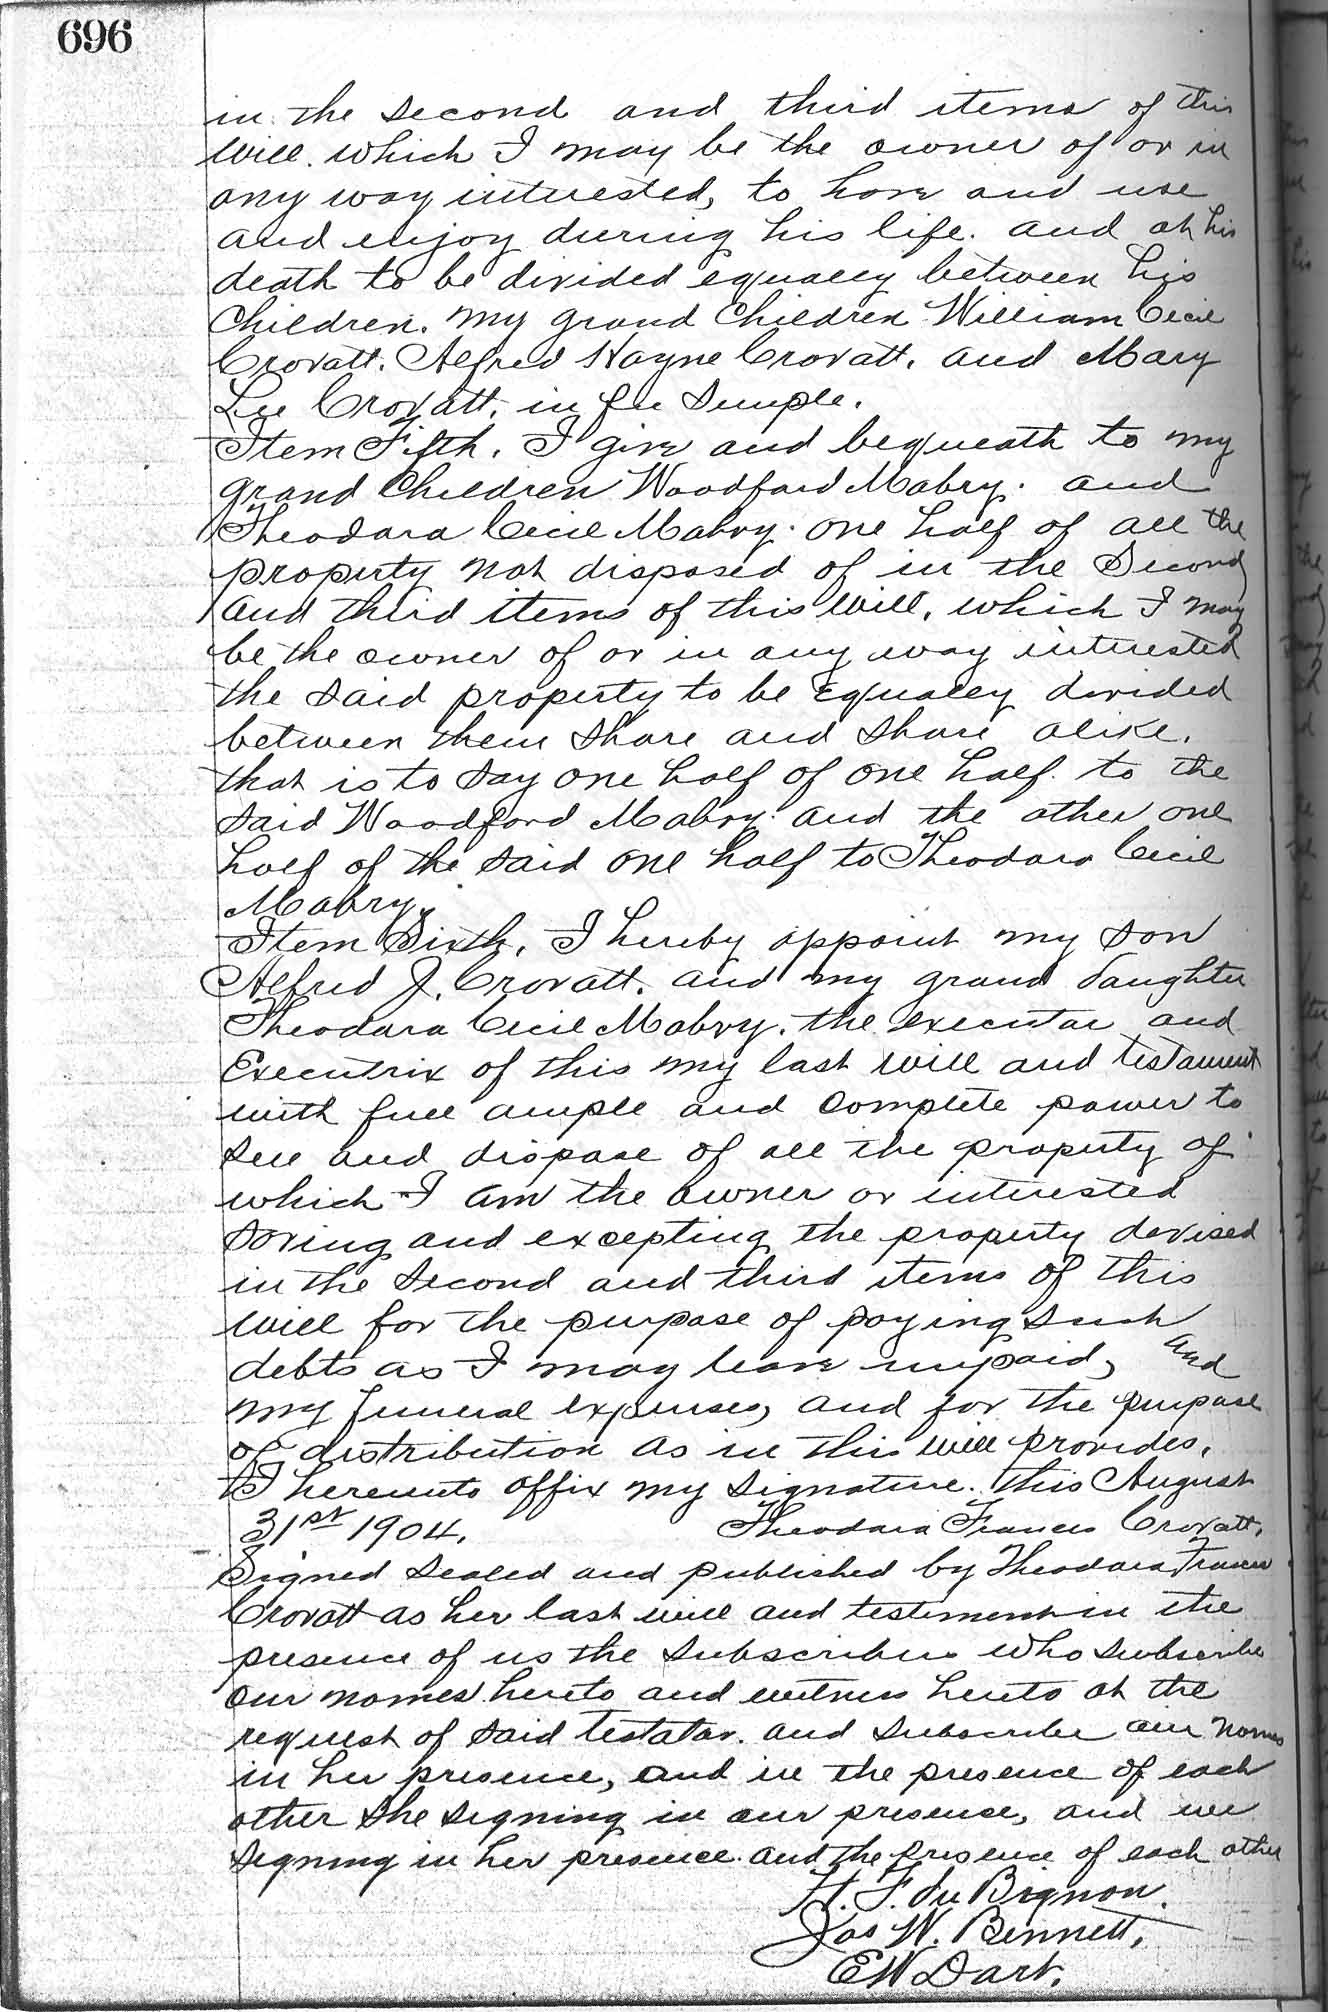 696
in the second and third items of this
Will. which I may be the owner of or in
any way interested, to have and use
and enjoy during his life. and at his
death to be divided equally between his
Children. my grand Children William Cecil
Crovatt. Alfred Hayne Crovatt. and Mary
Lee Crovatt. in fee simple.
Item Fifth. I give and bequeath to my
grand Children Woodford Mabry. and
Theodora Cecil Mabry. one half of all the
property not disposed of in the Second
and third items of this Will. which I may
be the owner of or in any way interested
the said property to be Equally divided
between them share and share alike.
that is to say one half of one half. to the
said Woodford Mabry. and the other one
half of the said one half to Theodora Cecil
Mabry.
Item Sixth. I hereby appoint my son
Alfred J. Crovatt. and my grand daughter
Theodora Cecil Mabry. the executor and
Executrix of this my last will and testament
with full ample and complete power to
sell and dispose of all the property of
which I am the owner or interested
saving and excepting the property devised
in the second and third items of this
will for the purpose of paying such
debts as I may leave unpaid, and
my funeral expenses, and for the purpose
of distribution as in this will provides.
I hereunto affix my signature. this August
31st 1904. Theodora Frances Crovatt.
Signed sealed and published by Theodora Frances
Crovatt as her last will and testiment in the
presence of us the subscribers who subscribe
our names hereto and witness hereto at the
request of said testator. and subscribe our names
in her presence, and in the presence of each
other she signing in our presence, and we
signing in her presence. and the presence of each other
H. F. du Bignon.
Jas W. Bennett,
E W Dart.